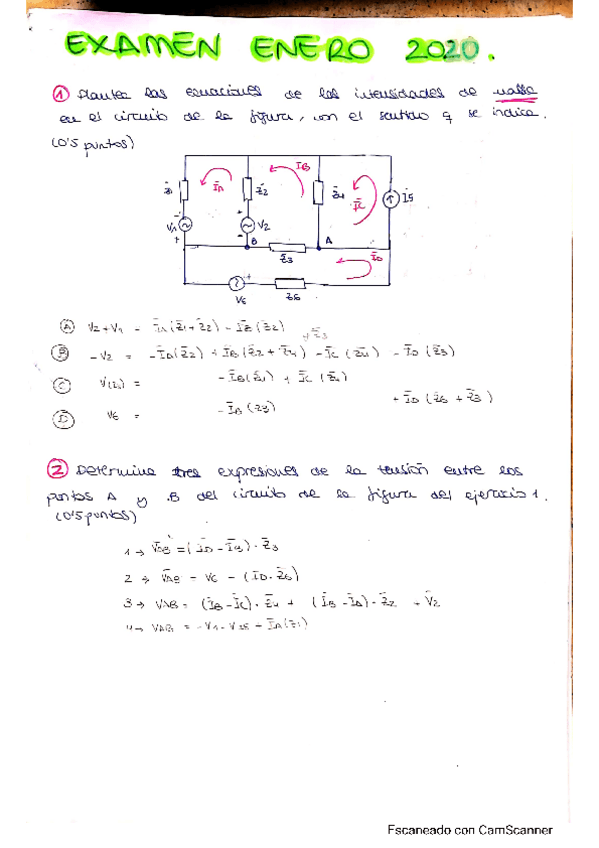 EXAMEN ENERO 2020.
① Plantea las ecuaciones de las intensidades de malla
en el circuito de la figura, con el sentido q se indica.
(0'5 puntos)
IB
Z1
IA
Z2
Z4
IC
I5
V1
V2
B
A
Z3
ID
V6
Z6
Ⓐ V2+V1 = IA(Z1+Z2) - IB(Z2)
Ⓑ -V2 = -IA(Z2) + IB(Z2+Z4) - IC(Z4) - ID(Z3)
+Z3
Ⓒ = -IB(Z4) + IC(Z4)
Ⓓ V6 = -IB(Z3) + ID(Z6+Z3)
② Determina tres expresiones de la tensión entre los
puntos A y B del circuito de la figura del ejercicio 1.
(0'5 puntos)
1 → VAB = (ID - IB)·Z3
2 → VAB = V6 - (ID·Z6)
3 → VAB = (IB-IC)·Z4 + (IB-IA)·Z2 + V2
4 → VAB = -V1 - - IA(Z1)
Escaneado con CamScanner